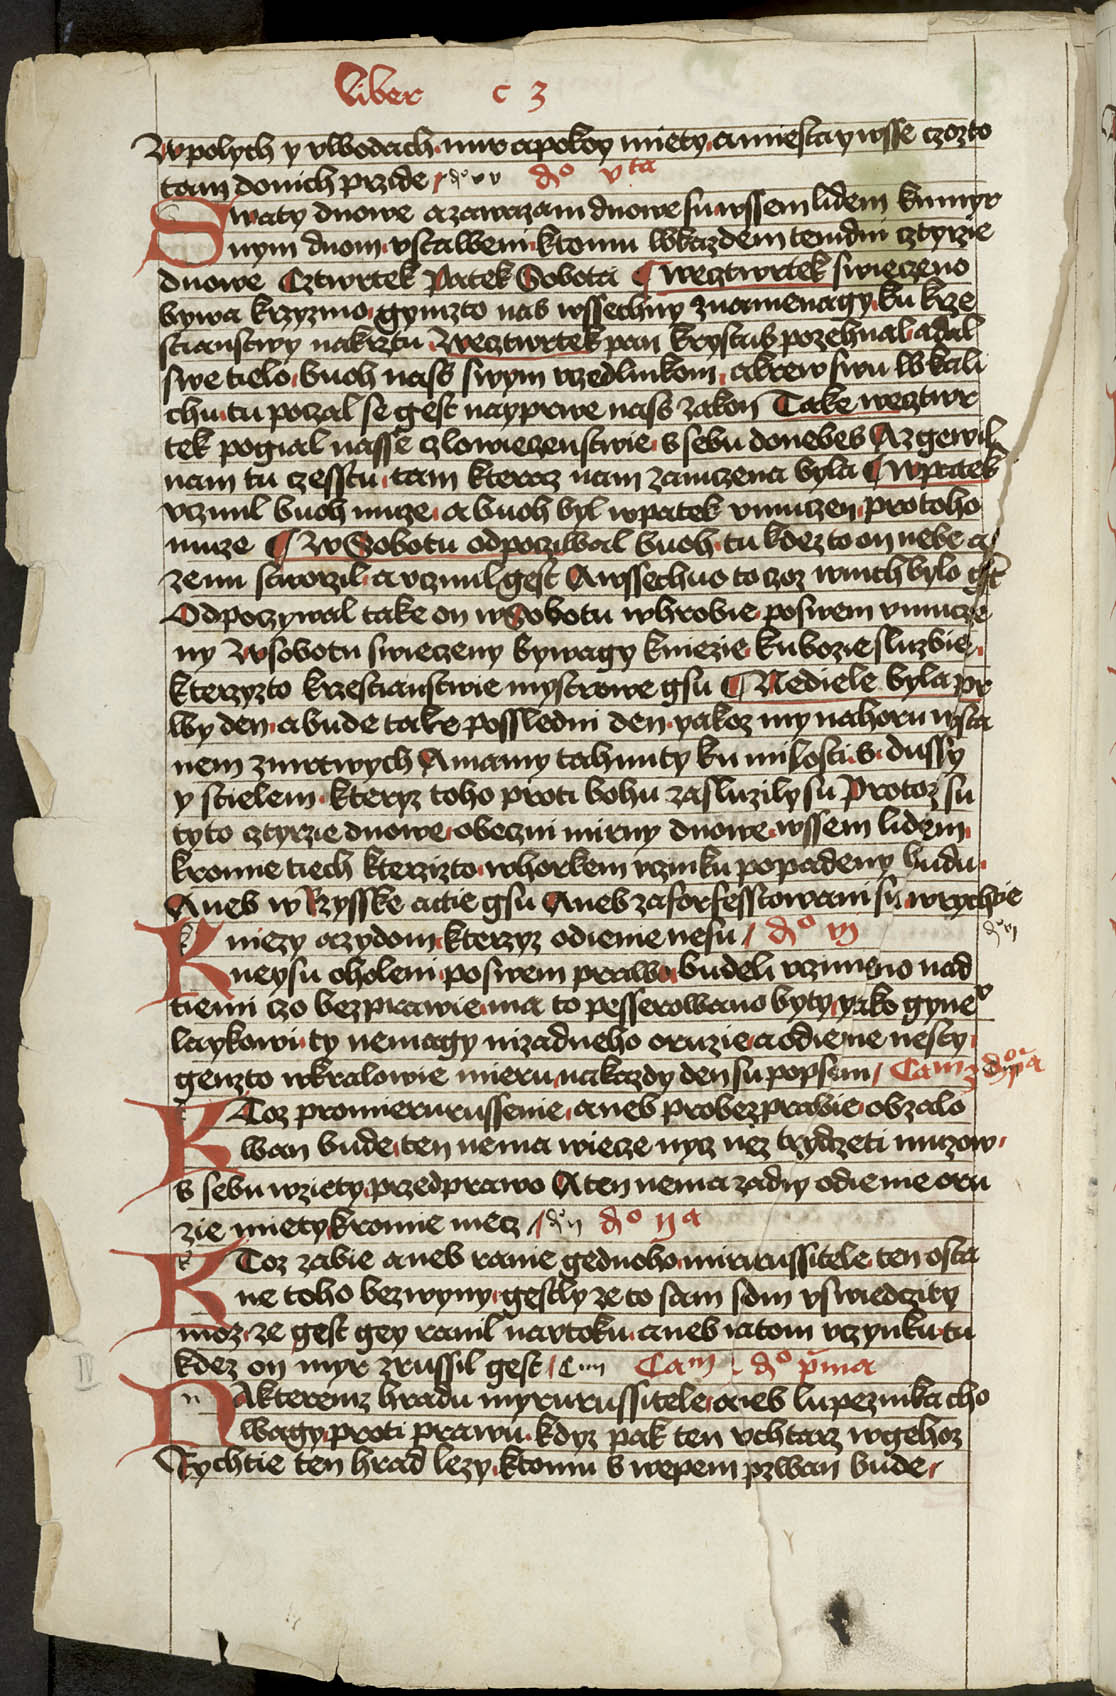 Liber c 3
W polych y vwodach mir apokoy miety amiesta y wsse czozto
tam donich przide d° v d° vta
Swaty dnowe azawazam dnowe su wssem lidem kumyr
nym dnom vstaweni ktomu wkazdem temdni cztyrzie
dnowe Cztwrtek Patek Sobota Weztwrtek swieczeno
bywa krzyzmo gymzto nas wssechny znamenagy ku krze
stianstwy nakrztu Weztwrtek pan krystus pozehnal adal
swe tielo buoh nass swym vzedlnikom akrew swu wkali
chu tu poczal se gest nayprwe nass zakon Take weztwr
tek pogial nasse czlowieczenstwie s sebu donebes Azgewil
nam tu czesstu tam kteraz nam zamczena byla Wpatek
vczinil buoh muze abuoh byl wpatek vmuczen protoho
muze W Sobotu odpocziwal buoh tu kdezto on nebe a
zemi stworzil a vczinil gest Awssechno to czoz wnich bylo gest
Odpoczywal take on wSobotu whrobie poswem vmucze
ny W sobotu swieczeny bywagy kniezie kubozie sluzbie
kterzyzto krzestianstwie mystrowe gsu Nediele byla pr
wy den abude take possledni den yakoz my nahoru wsta
nem zmrtwych Amamy tahnuty ku milosti s dussy
y stielem kteryz toho proti bohu zasluzily su Protoz su
tyto cztyrzie dnowe obeczni mirny dnowe wssem lidem
kromie tiech kterzizto whorkem vczinku popadeny budu
Aneb wRzysske actie gsu Aneb zaforfesstowani su wrychtie
Kniezy azydom kterzyz odienie nesu d° vj d° vj
neysu oholeni poswem prawu budeli vczineno nad
tiemi czo bezprawie ma to pesserowano byty yako gyne°
laykowi ty nemagy nizadneho oruzie aodienie nesty
genzto wkralowie mieru nakazdy den su popsani Cam 3 d° pa
KToz promierurussenie aneb probezprawie obzalo
wan bude ten nema wiecze nyz nez trzydzeti muzow
s sebu wziety przedprawo Aten nema zadny odienie oru
zie miety kromie mecz d° ij d° ija
KToz zabie aneb ranie gednoho mirurussitele ten osta
ne toho bezwyny gestly ze to sam sdm vswiedczity
moz ze gest gey ranil navtoku aneb iatom vczynku tu
kdez on myr zrussil gest C iiii Cam d° prima
NAkteremz hradu myrurussitele aneb lupeznika cho
wagy proti prawu kdyz pak ten rchtarz wgehoz
Rychtie ten hrad lezy ktomu s wepem pzwan bude